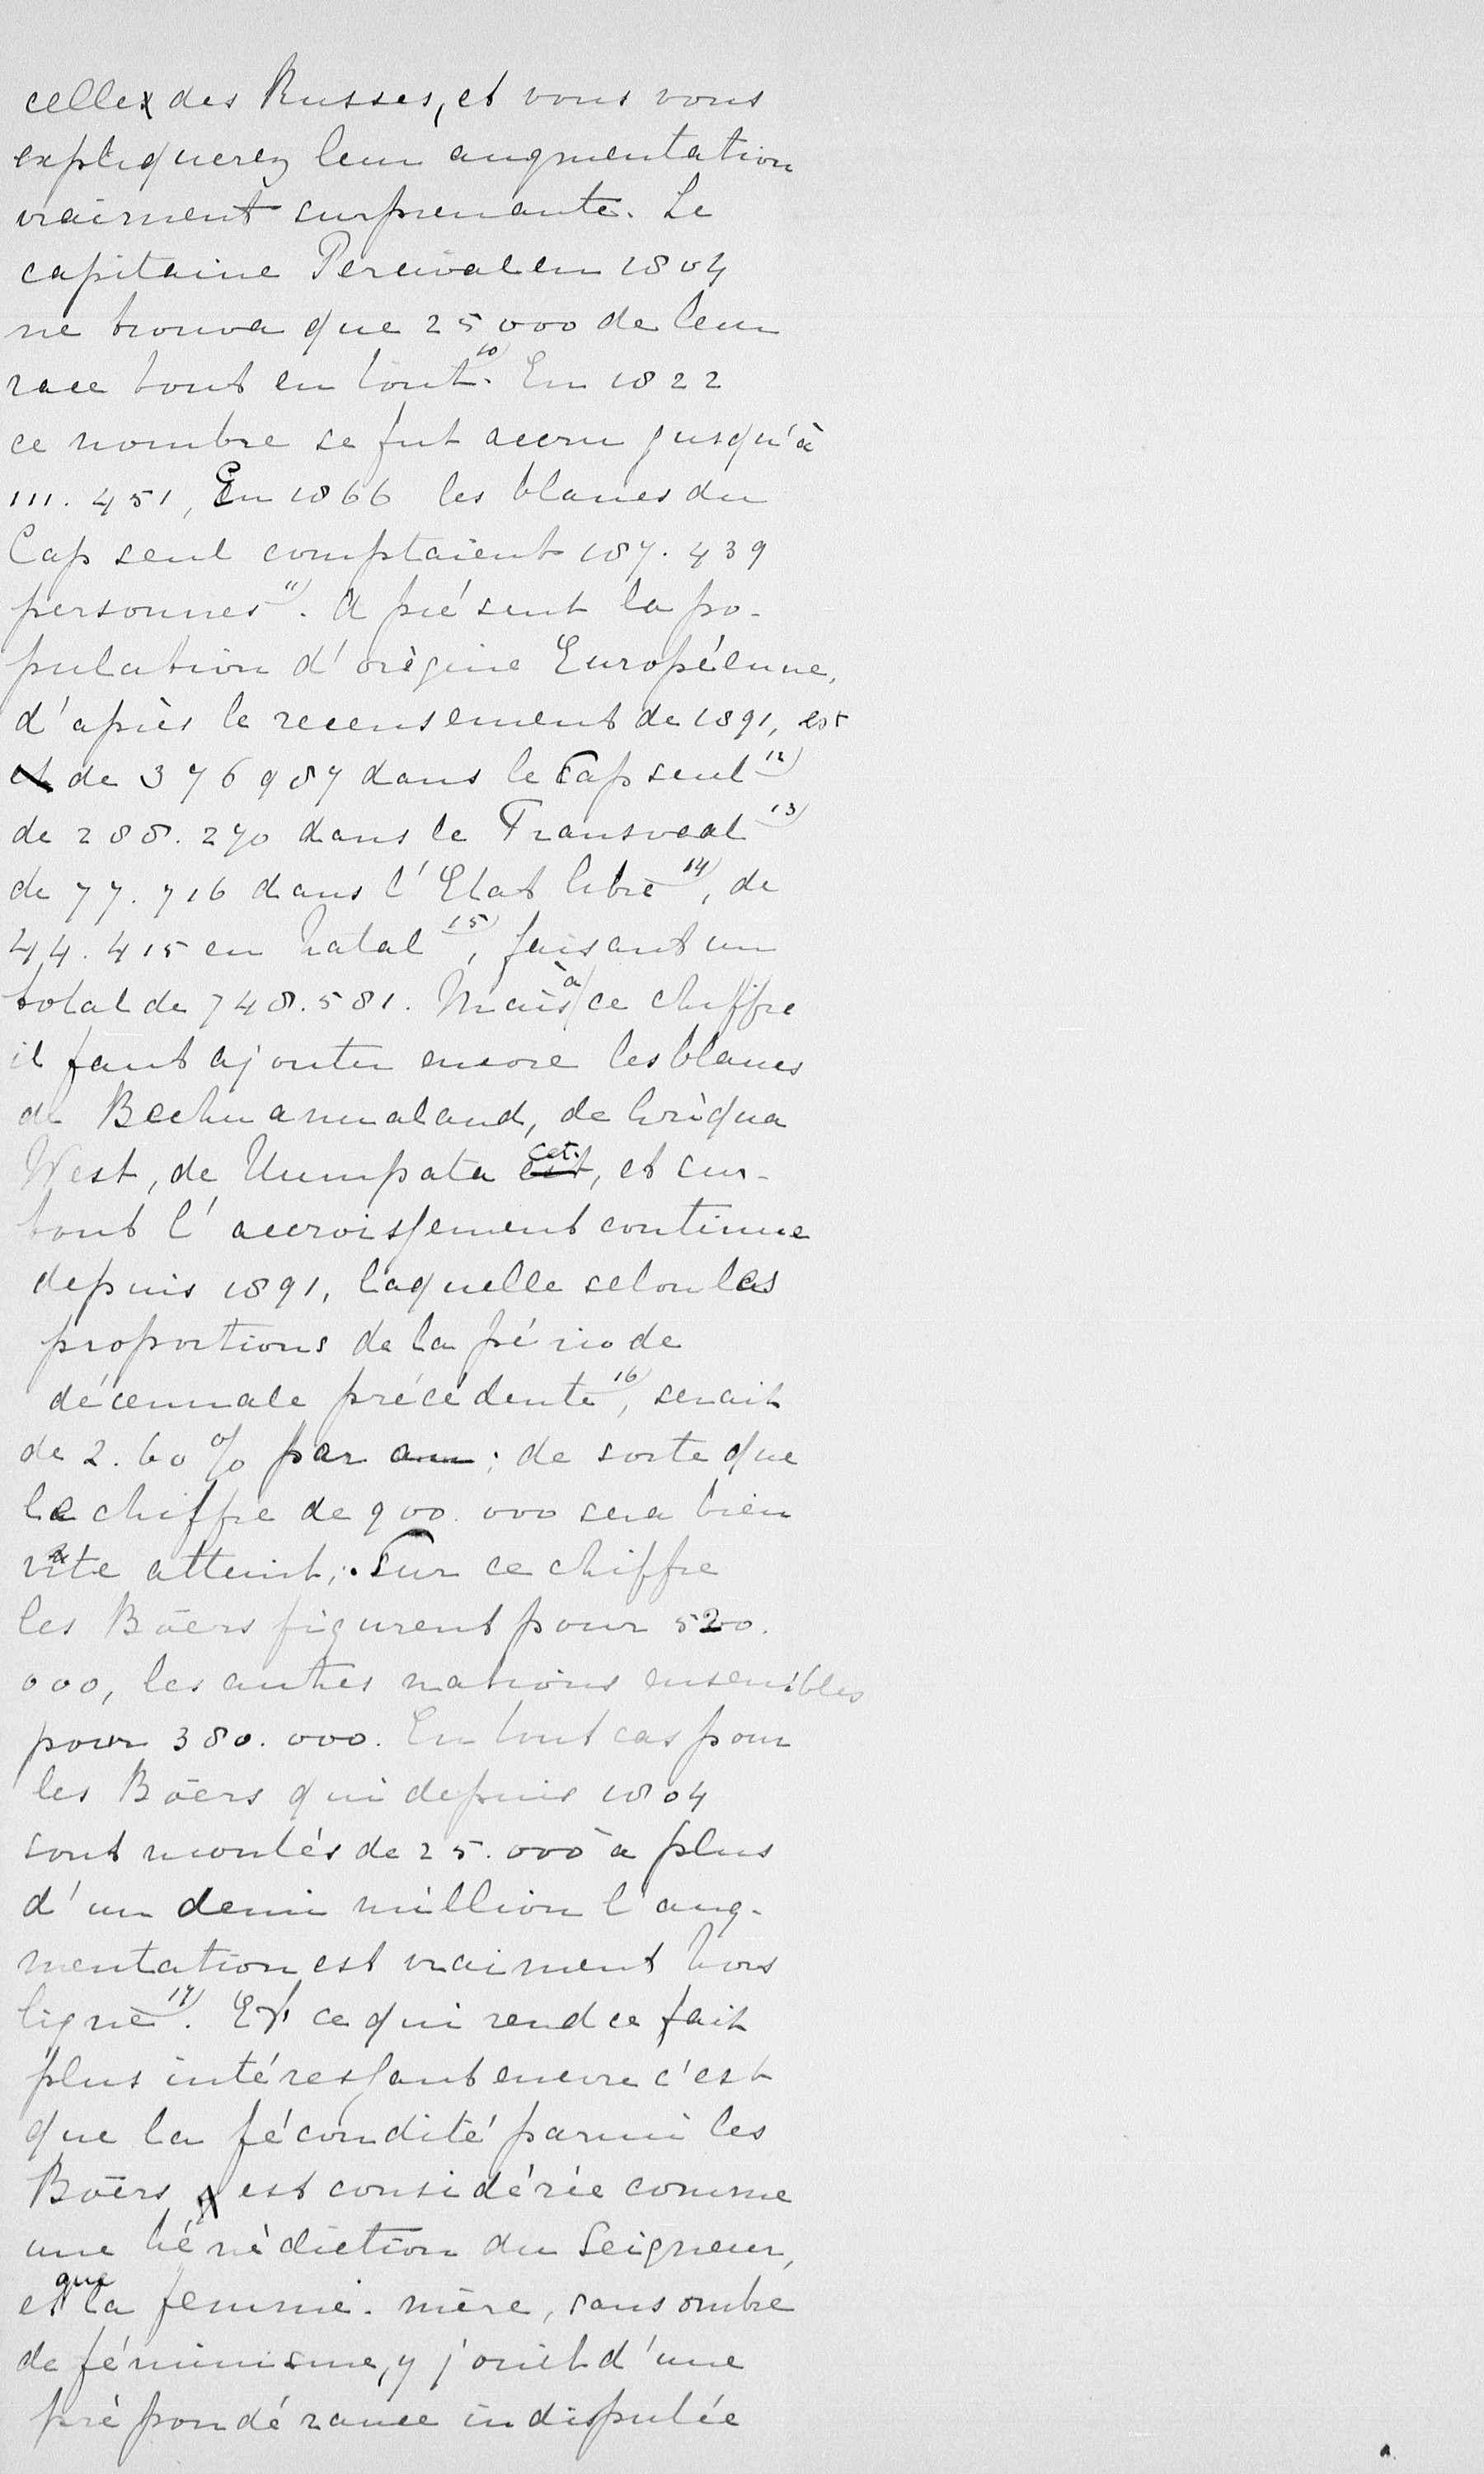 celle des Russes, et vous vous
expliquerez leur augmentation
vraiment surprenante. Le
capitaine Percival en 1804
ne trouva que 25 000 de leur
race tout en tout 10). En 1822
ce nombre se fut accru jusqu'à
111.451, En 1866 les blancs du
Cap seul comptaient 187.439
personnes 11). A présent la po-
pulation d'origine Européenne,
d'après le recensement de 1891, est
de 376 987 dans le Cap seul 12)
de 288.270 dans le Transvaal 13)
de 77.716 dans l'Etat libre 14), de
44.415 en Natal 15), faisant un
total de 748.581. Mais à ce chiffre
il faut ajouter encore les blancs
de Bechuannaland, de Griqua
West, de Uumpata cet., et sur-
tout l'accroissement continue
depuis 1891, laquelle selon les
proportions de la période
décennale précédente 16), serait
de 2.60% par an; de sorte que
le chiffre de 900.000 sera bien
vite atteint; Sur ce chiffre
les Boërs figurent pour 520.
000, les autres nations ensembles
pour 380.000. En tout cas pour
les Boërs qui depuis 1804
sont montés de 25.000 à plus
d'un demi million l'aug-
mentation est vraiment hors
ligne 17). Et ce qui rend ce fait
plus intéressant encore c'est
que la fécondité parmi les
Boërs est considérée comme
une bénédiction du Seigneur,
et que la femme-mère, sans ombre
de féminisme, y jouit d'une
prépondérance indisputée